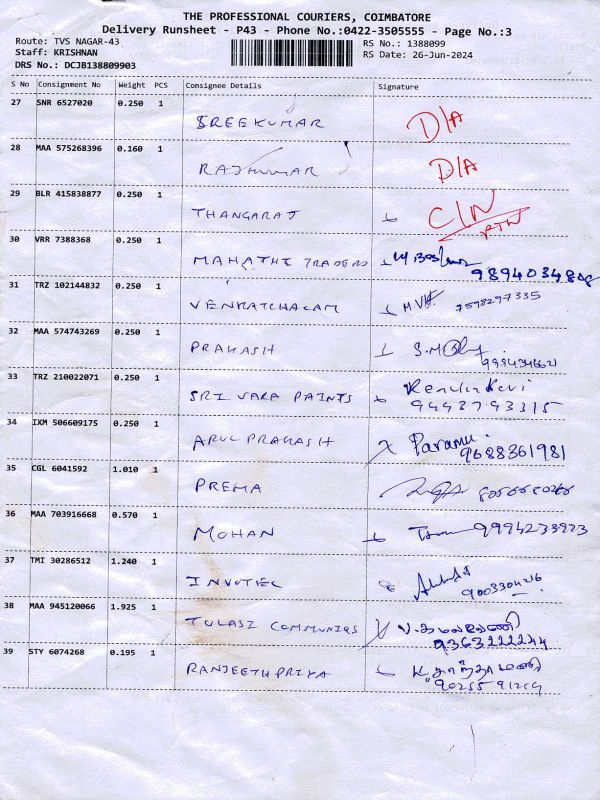 THE PROFESSIONAL COURIERS, COIMBATORE
Delivery Runsheet - P43 - Phone No.:0422-3505555 - Page No.:3
Route: TVS NAGAR-43 RS No.: 1388099
Staff: KRISHNAN RS Date: 26-Jun-2024
DRS No.: DCJB138809903
S No Consignment No Weight PCS Consignee Details Signature
27 SNR 6527020 0.250 1
SREEKUMAR D/A
28 MAA 575268396 0.160 1
RAJKUMAR D/A
29 BLR 415838877 0.250 1
THANGARAJ C/N
30 VRR 7388368 0.250 1
MAHATHI TRADERS 9894034808
31 TRZ 102144832 0.250 1
VENKATCHALAM 7598297335
32 MAA 574743269 0.250 1
PRAKASH
33 TRZ 210022071 0.250 1
SRI VARA PAINTS 9443793315
34 IXM 506609175 0.250 1
ARUL PRAKASH Paramu
9688361981
35 CGL 6041592 1.010 1
PREMA
36 MAA 703916668 0.570 1
MOHAN
37 TMI 30286512 1.240 1
INVOTEC 9003304216
38 MAA 945120066 1.925 1
TULASI 9363222244
39 STY 6074268 0.195 1
RANJEETHPRIYA